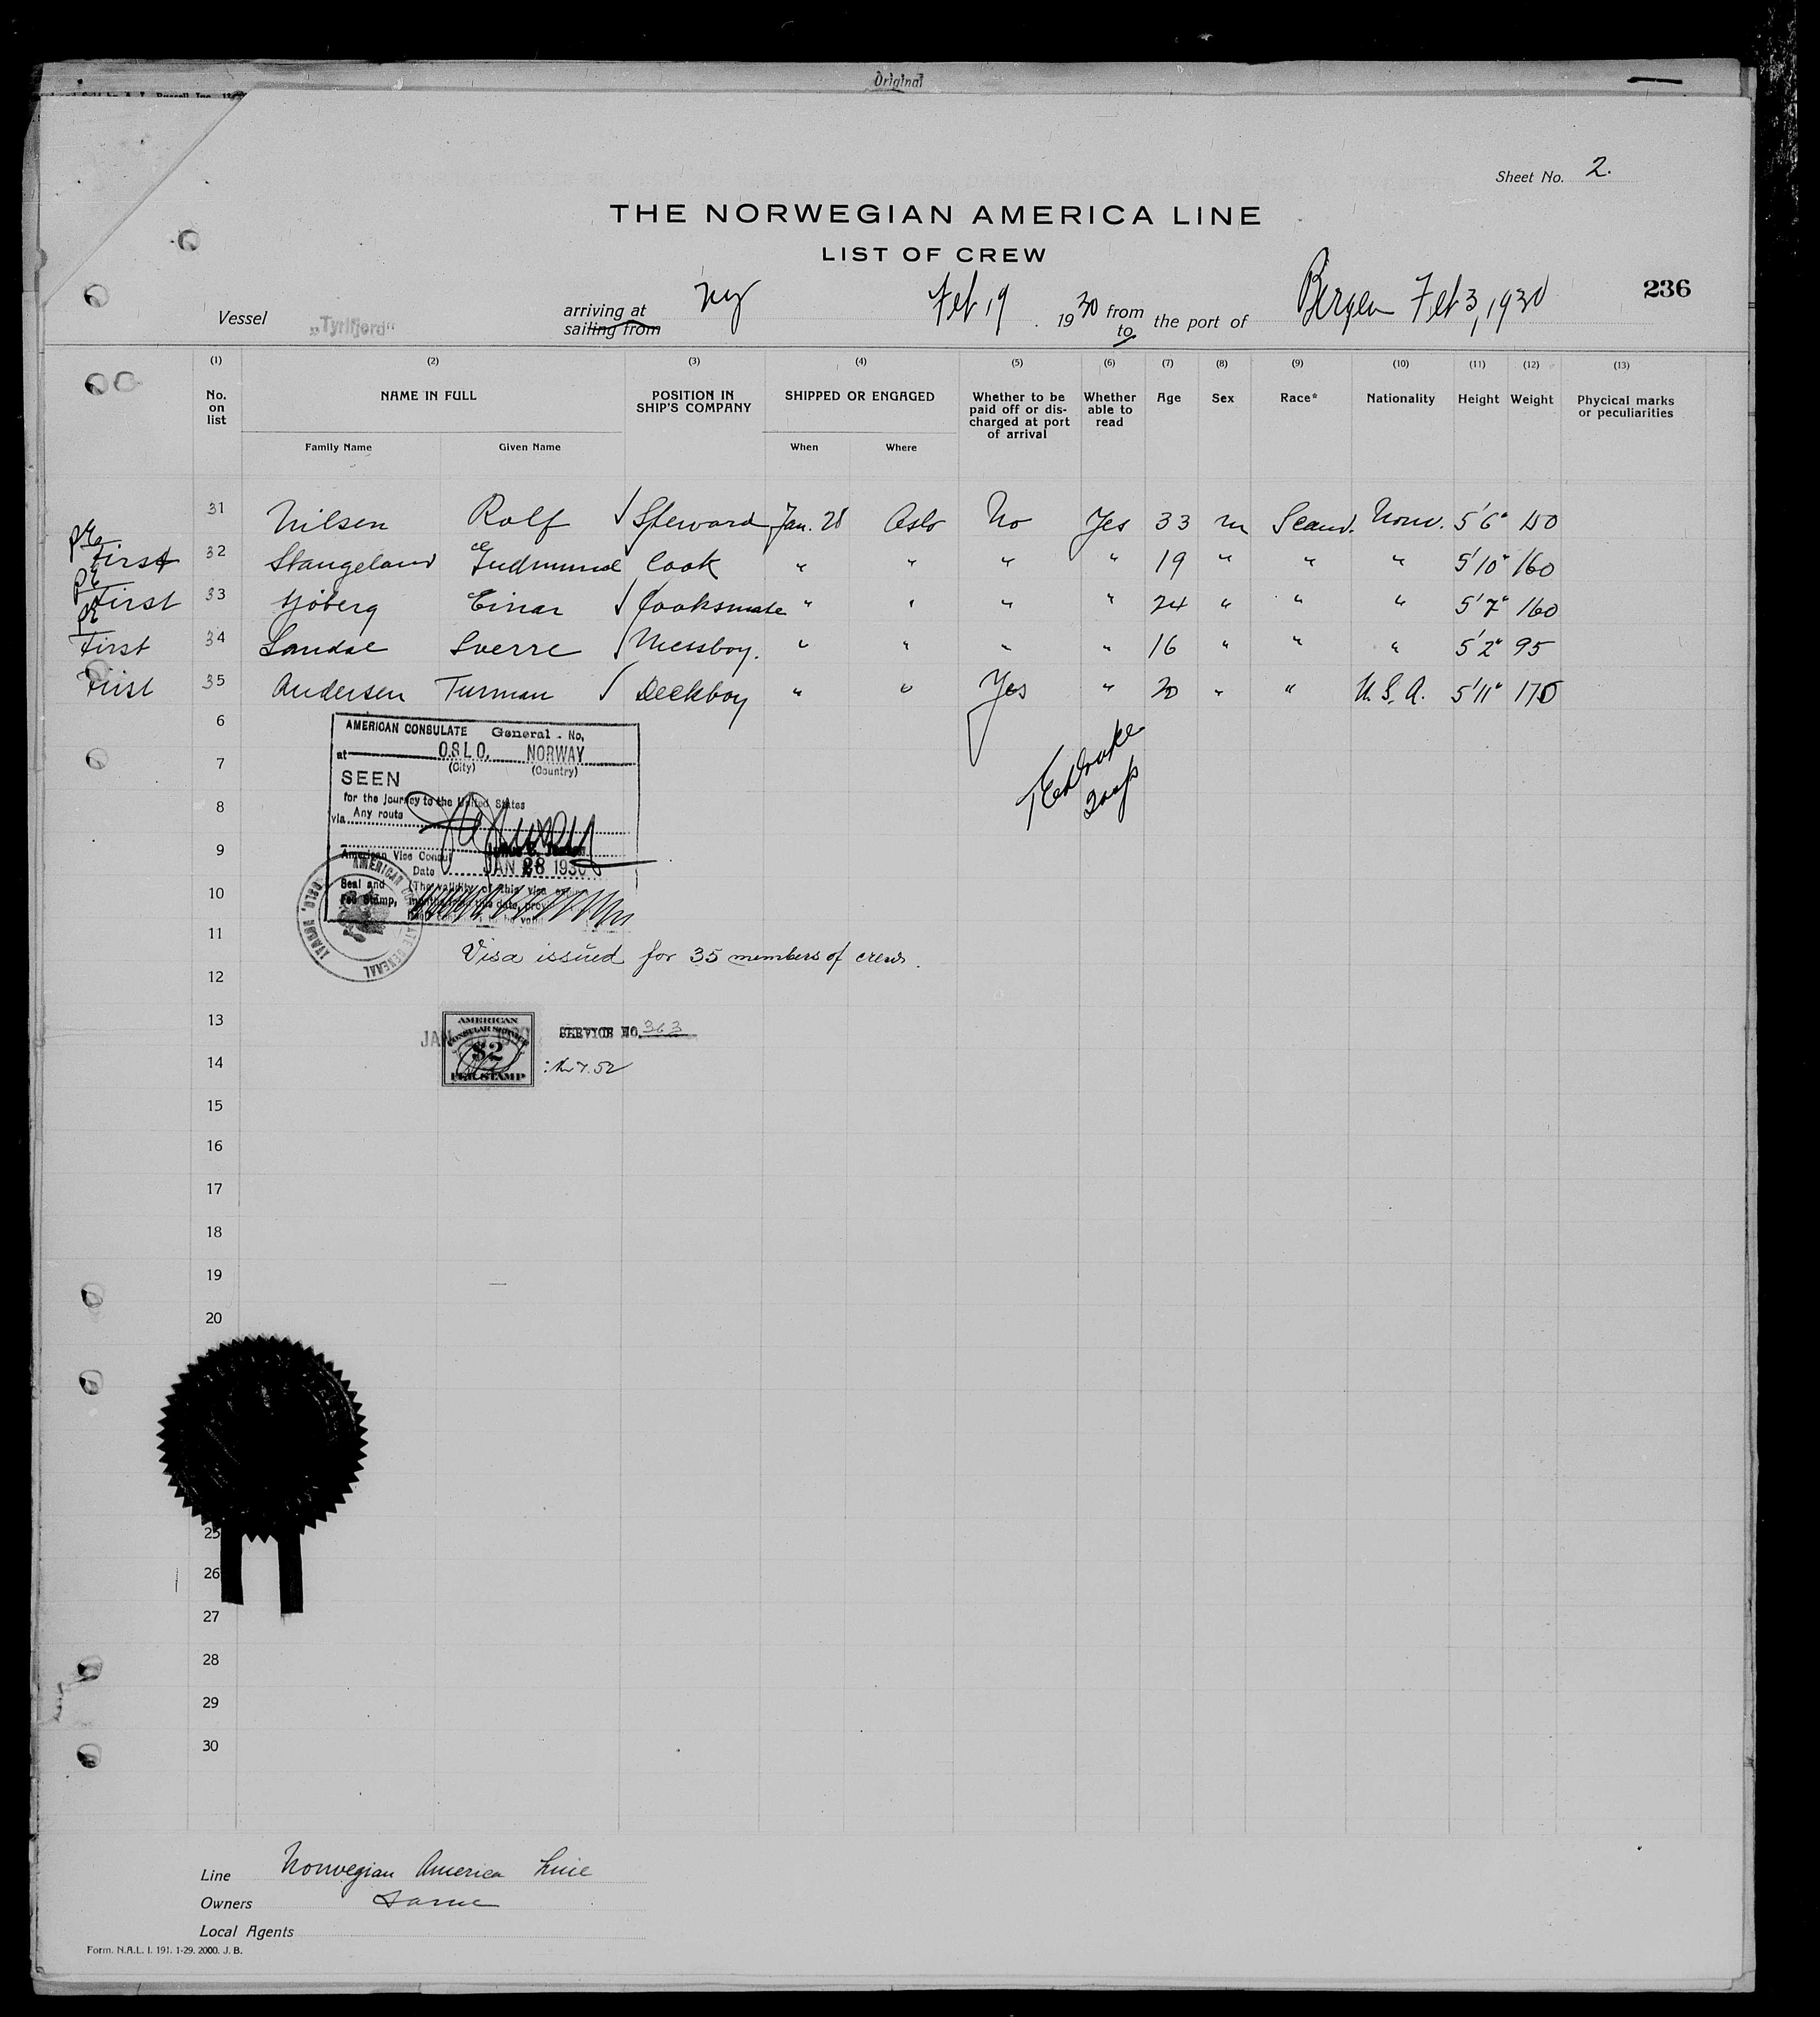 Original
Sheet No. 2.
THE NORWEGIAN AMERICA LINE
LIST OF CREW
236
Vessel "Tyrifjord" arriving at sailing from NY Feb 19 1930 from to the port of Bergen Feb 3, 1930
(1) (2) (3) (4) (5) (6) (7) (8) (9) (10) (11) (12) (13)
No. on list NAME IN FULL POSITION IN SHIP'S COMPANY SHIPPED OR ENGAGED Whether to be paid off or discharged at port of arrival Whether able to read Age Sex Race* Nationality Height Weight Phycical marks or peculiarities
Family Name Given Name When Where
31 Nilsen Rolf √ Steward Jan. 28 Oslo No Yes 33 m Scand. Norw. 5'6" 150
First 32 Stangeland Gudmund Cook " " " " 19 " " " 5'10" 160
First 33 Einar √ Cooksmate " " " " 24 " " " 5'7" 160
First 34 Sverre √ Messboy. " " " " 16 " " " 5'2" 95
First 35 Andersen Turman √ Deckboy " " Yes " 20 " " U.S.A. 5'11" 170
6
AMERICAN CONSULATE General - No,
at OSLO, NORWAY
(City) (Country)
7
SEEN
for the journey to the United States
8
via Any route
9
American Vice Consul
Date JAN 28 1930
10
Seal and Fee Stamp, (The validity of this visa
months from this date,
AMERICAN CONSULATE GENERAL OSLO, NORWAY
11
Visa issued for 35 members of crew.
12
13
AMERICAN CONSULAR SERVICE $2 FEE STAMP
SERVICE NO. 363
14
7.52
15
16
17
18
19
20
25
26
27
28
29
30
Line Norwegian America Line
Owners Same
Local Agents
Form. N.A.L. I. 191. 1-29. 2000. J. B.